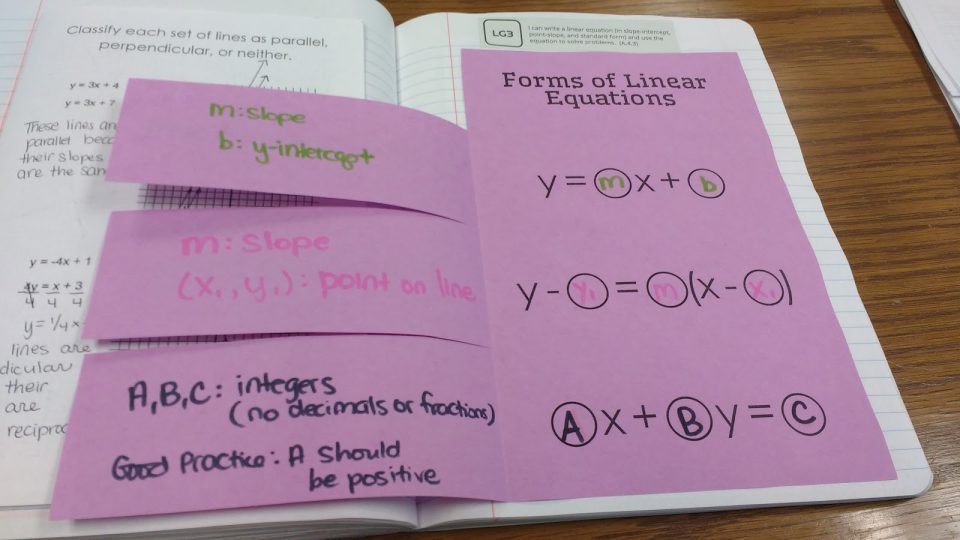 Classify each set of lines as parallel,
perpendicular, or neither.
y = 3x + 4
y = 3x + 7
These lines
parallel
their slopes
are the
y = -4x + 1
4y = x + 3
4 4 4
y = 1/4 x
lines are
their
are
m: slope
b: y-intercept
m: slope
(x₁, y₁): point on line
A, B, C: integers
(no decimals or fractions)
Good Practice: A should
be positive
LG3
I can write a linear equation (in slope-intercept,
point-slope, and standard form) and use the
equation to solve problems. (A.4.3)
Forms of Linear
Equations
y = m x + b
y - y₁ = m (x - x₁)
A x + B y = C